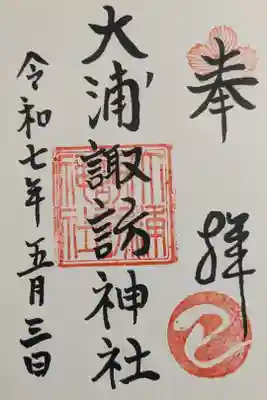 奉拝
大浦諏訪神社
令和七年五月三日